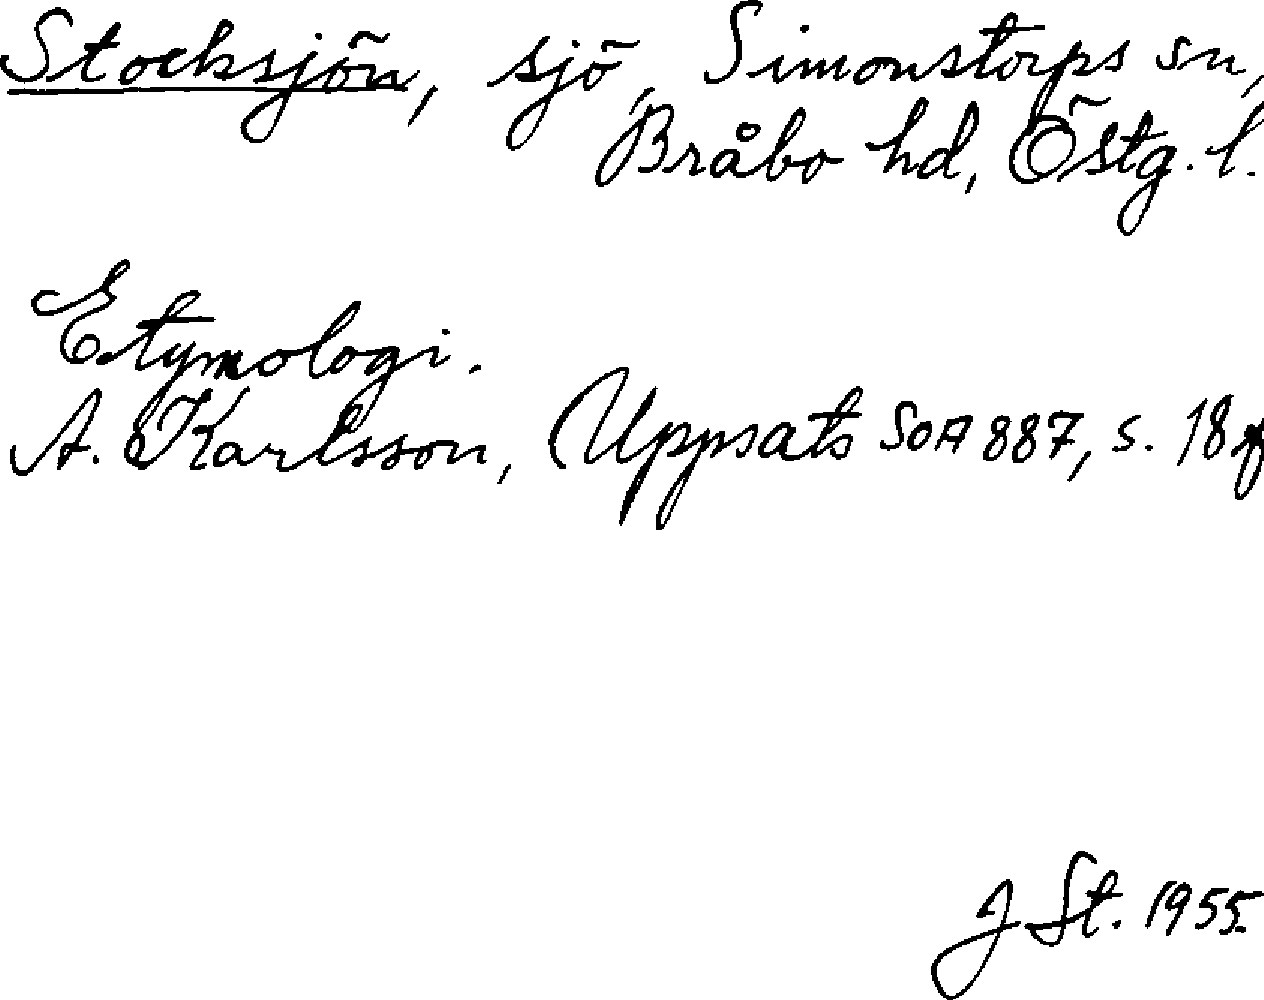 Stocksjön, sjö, Simonstorps sn,
Bråbo hd, Östg. l.
Etymologi.
A. Karlsson, Uppsats SOA 887, s. 18 f
J St. 1955